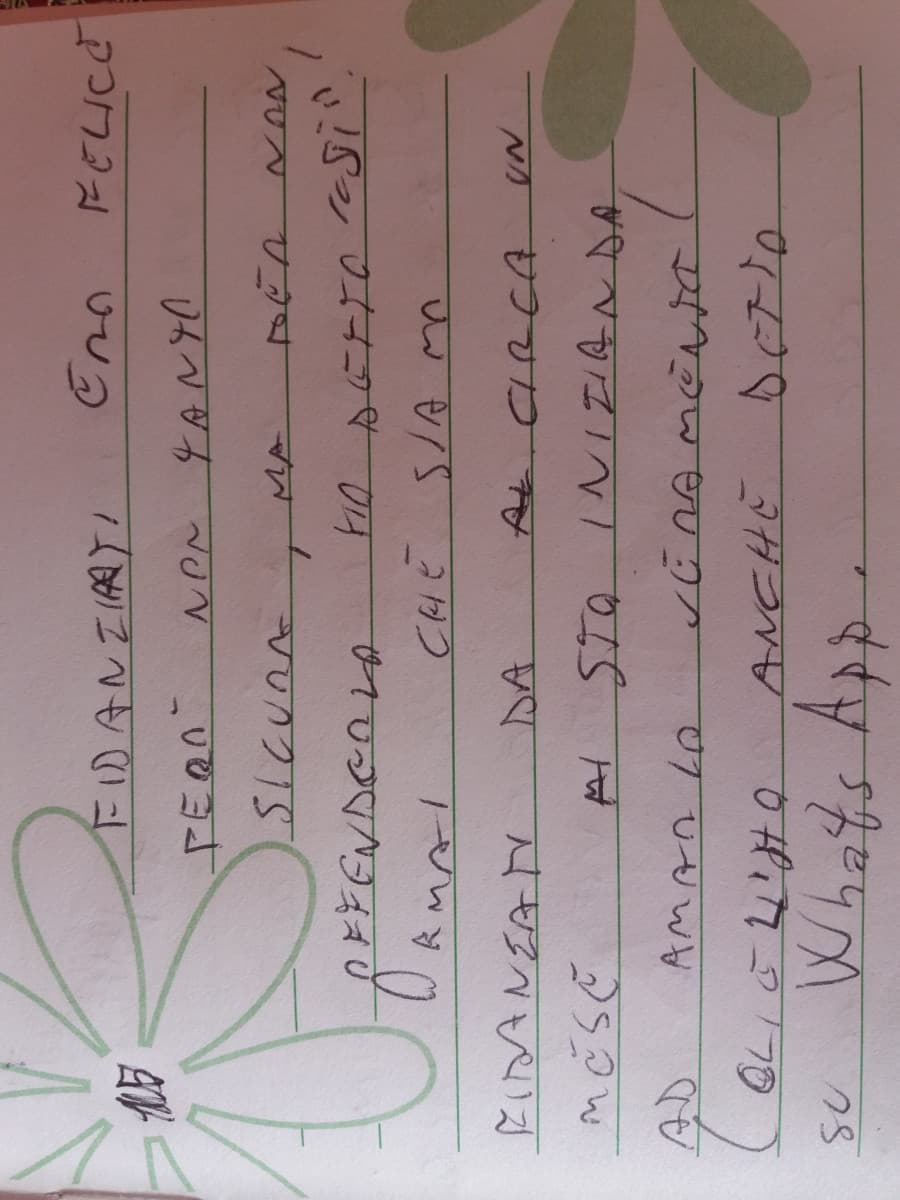 FIDANZIATI ERO FELICE
PERÒ NON TANTO
SICURA, MA PER NON
OFFENDERLO HO DETTO "SÌ".
ORMAI CHE SIAMO
FIDANZATI DA CIRCA UN
MESE STO INIZIANDO
AD AMARLO VERAMENTE!
(GLIEL'HO ANCHE DETTO
SU WhatsApp.